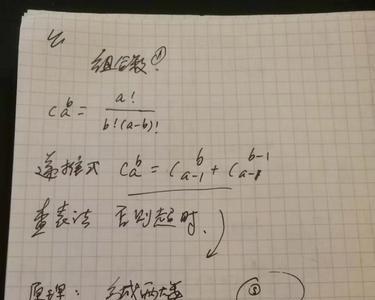 组合数①
C_a^b = a! / b!(a-b)!
递推式 C_a^b = C_{a-1}^b + C_{a-1}^{b-1}
查表法 否则超时.
原理: 分成两大类 ③